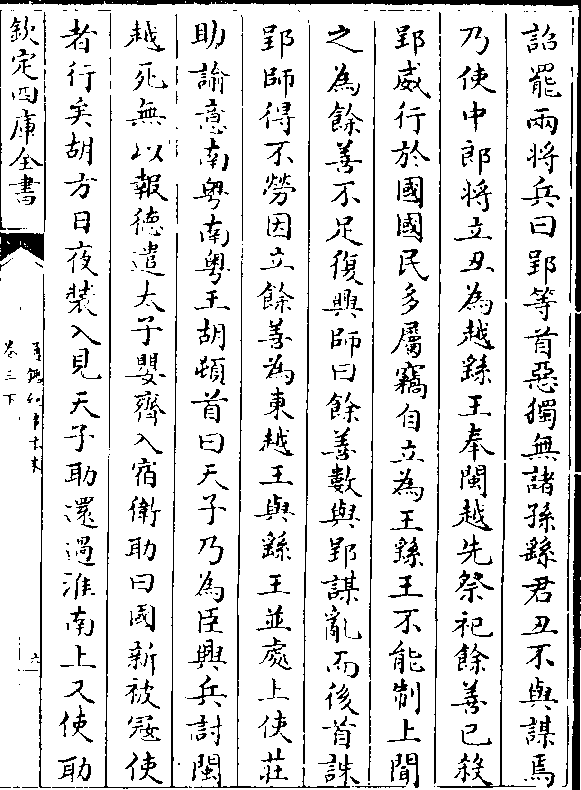 詔罷兩將兵曰郢等首惡獨無諸孫繇君丑不與謀焉
乃使中郎將立丑為越繇王奉閩越先祭祀餘善已殺
郢威行於國國民多屬竊自立為王繇王不能制上聞
之為餘善不足復興師曰餘善數與郢謀亂而後首誅
郢師得不勞因立餘善為東越王與繇王並處上使莊
助諭意南粤南粤王胡頓首曰天子乃為臣興兵討閩
越死無以報德遣太子嬰齊入宿衛助曰國新被寇使
者行矣胡方日夜裝入見天子助還過淮南上又使助
欽定四庫全書
卷三下
六